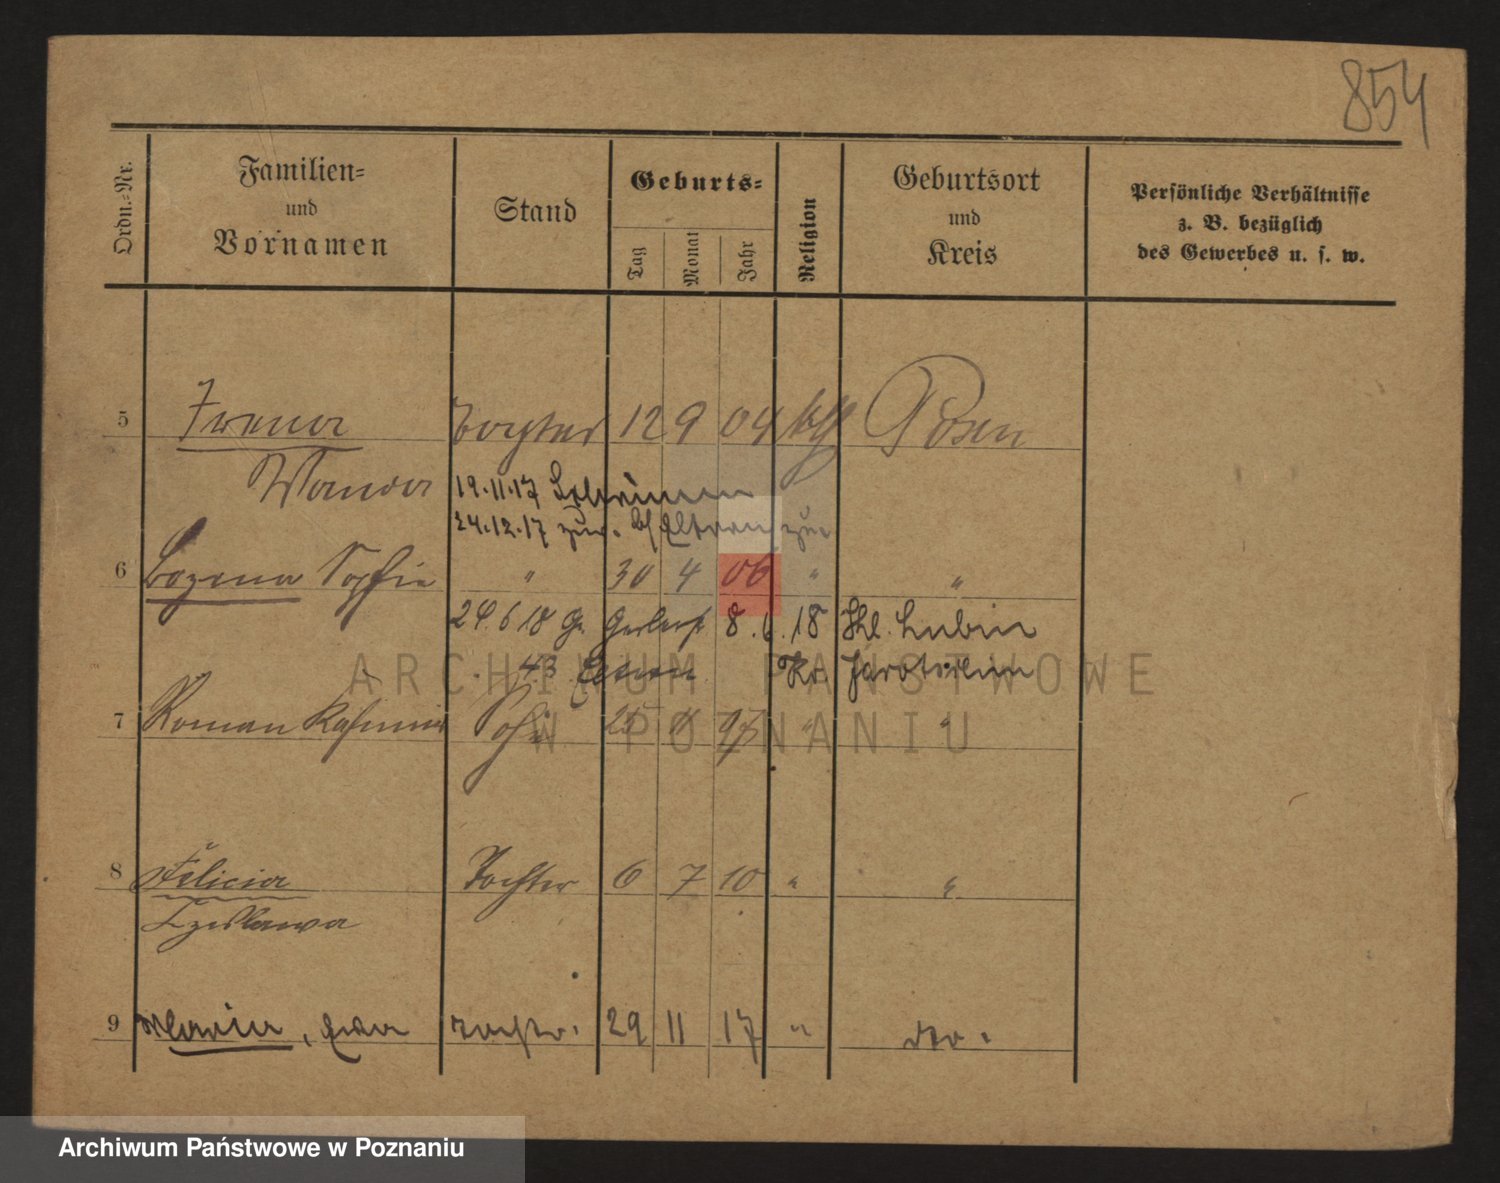 854
Ordn.-Nr.
Familien-
und
Vornamen
Stand
Geburts-
Tag
Monat
Jahr
Religion
Geburtsort
und
Kreis
Persönliche Verhältnisse
z. B. bezüglich
des Gewerbes u. s. w.
5 Irena Tochter 12 9 04 kth Posen
Wanda 19.11.17
24.12.17 zur. Eltern
6 Bozena Sophie " 30 4 06 " "
24.6.18 8.6.18 Lubin
43 Kr. Jarotschin
7 Roman Kasimir Sohn 25 " "
8 Felicia Tochter 6 7 10 " "
Czeslawa
9 Maria, Ewa Tochter. 29 11 17 " do.
ARCHIWUM PAŃSTWOWE
W POZNANIU
Archiwum Państwowe w Poznaniu